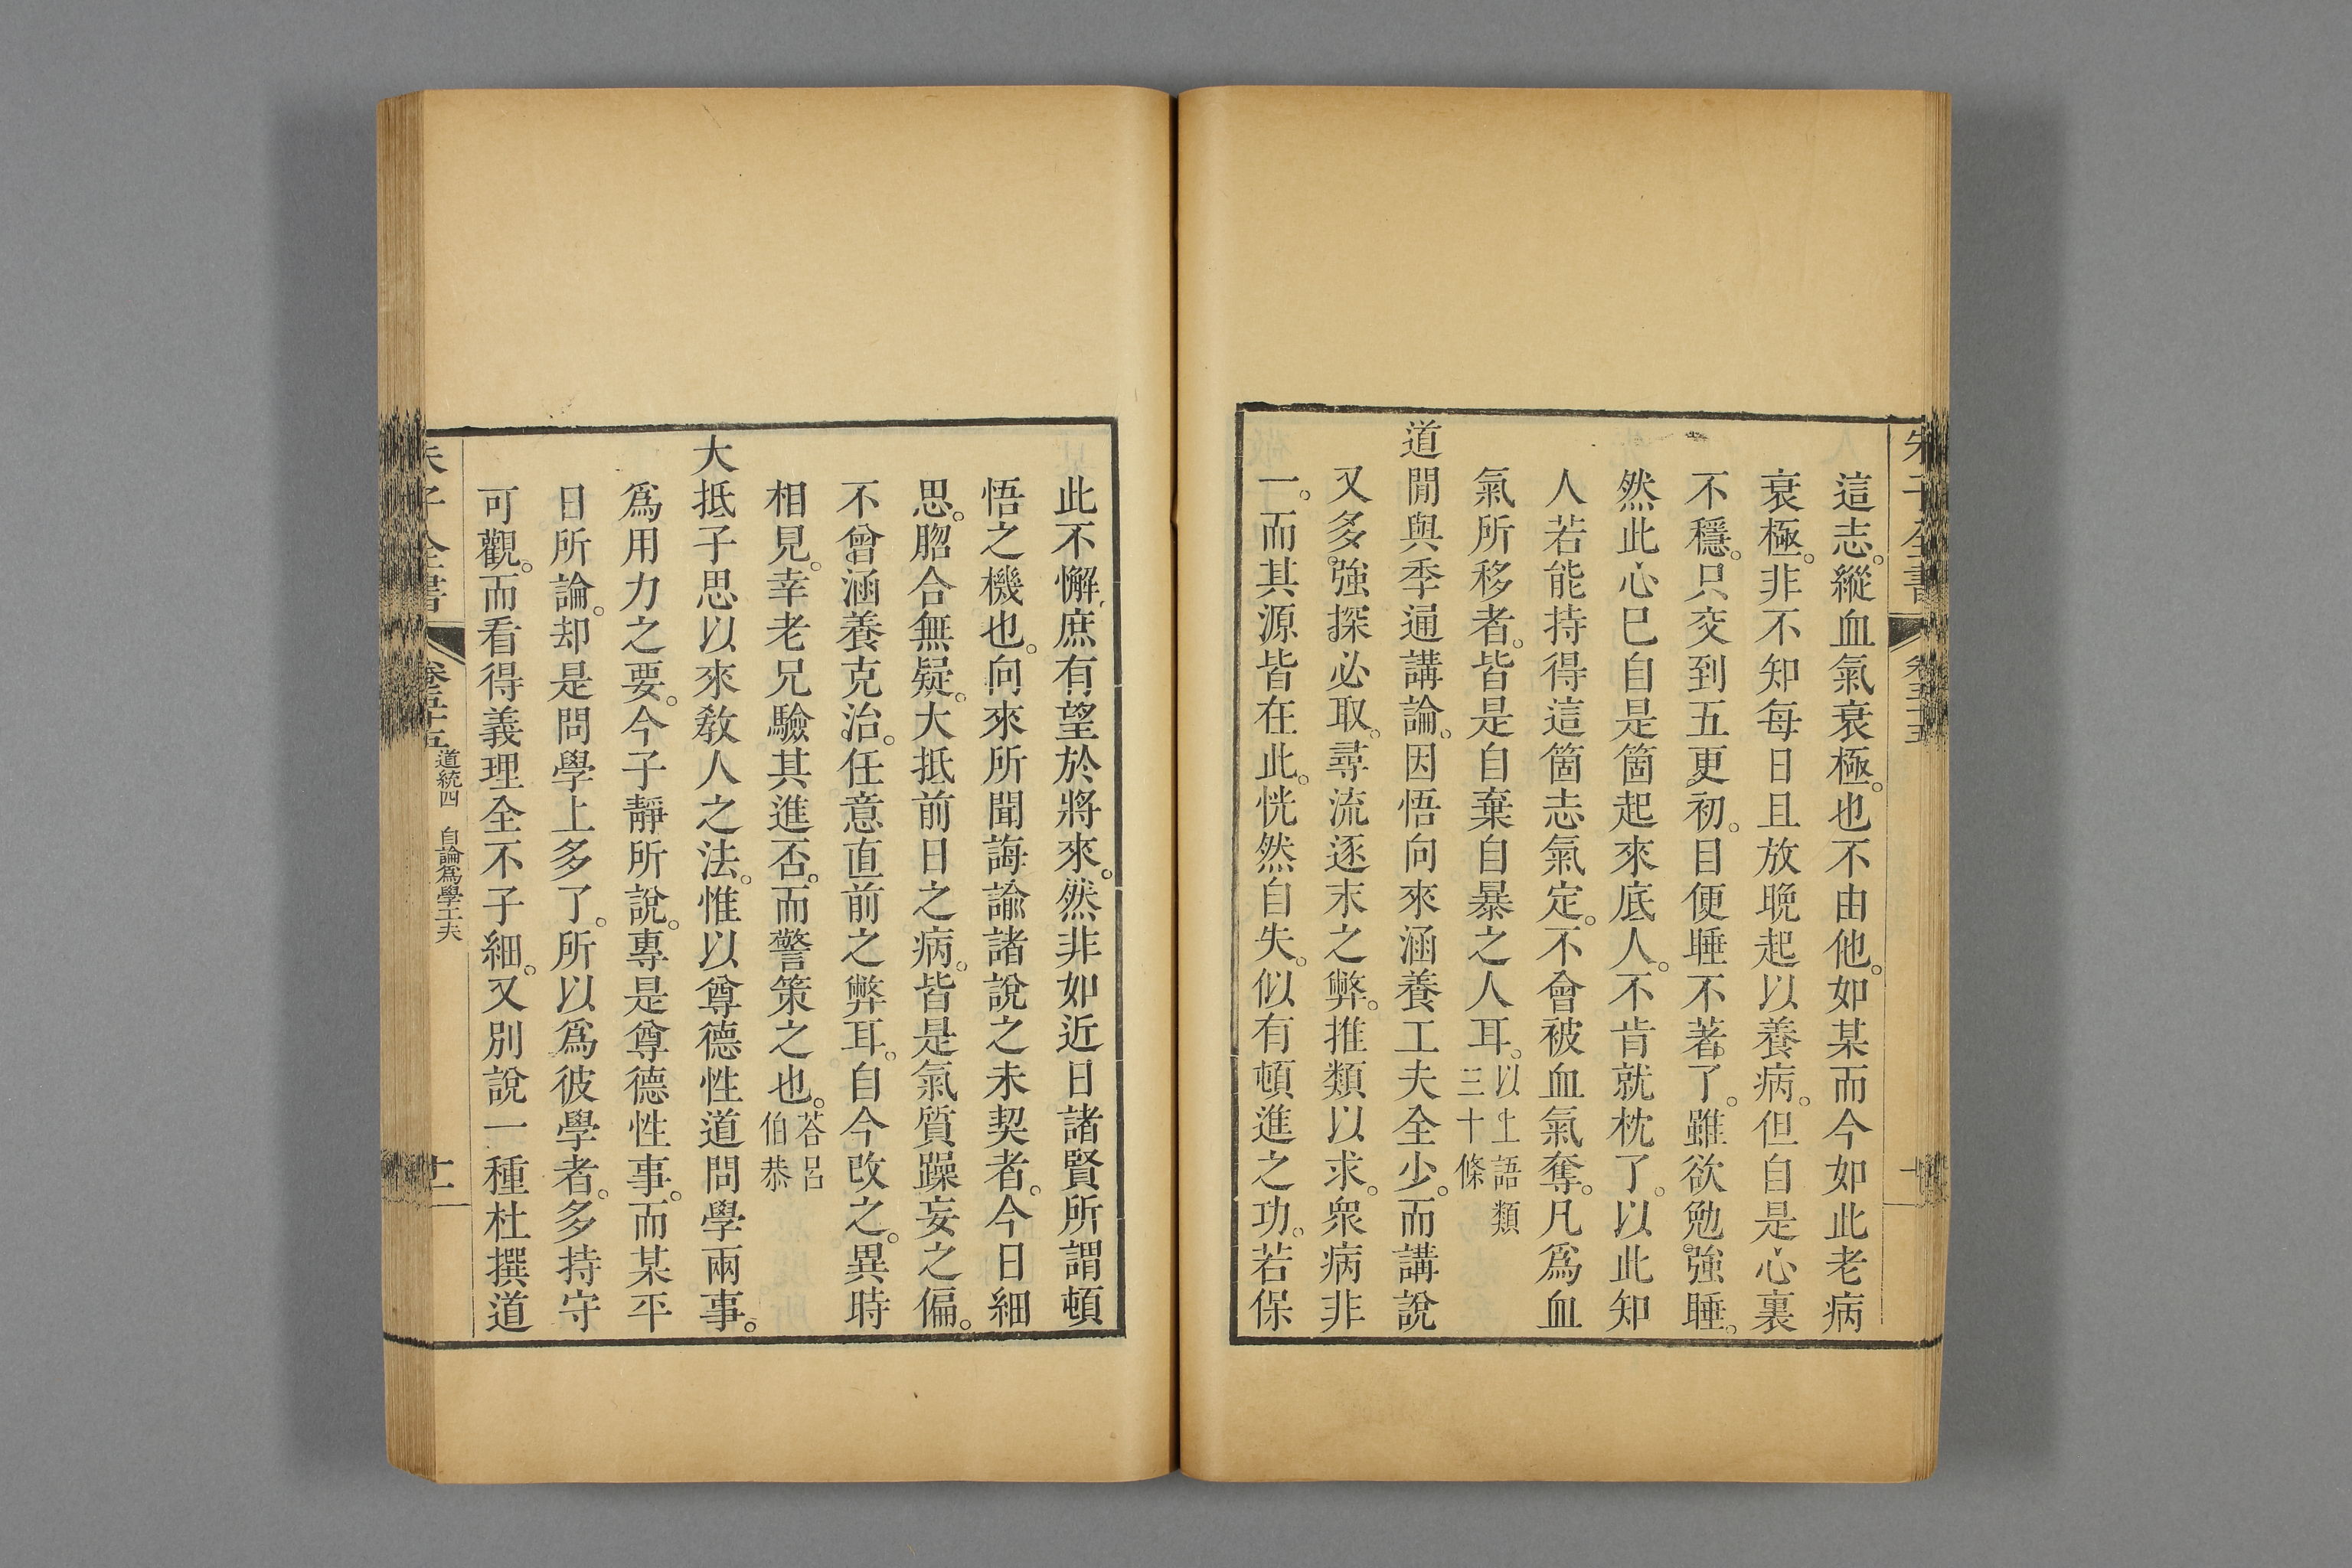 朱子全書 卷五十五
這志。縱血氣衰極。也不由他。如某而今如此老病
衰極。非不知每日且放晚起以養病。但自是心裏
不穩。只交到五更初。目便睡不著了。雖欲勉強睡。
然此心已自是箇起來底人。不肯就枕了。以此知
人若能持得這箇志氣定。不會被血氣奪。凡爲血
氣所移者。皆是自棄自暴之人耳。以上語類三十條
道閒與季通講論。因悟向來涵養工夫全少。而講說
又多。強探必取。尋流逐末之弊。推類以求。衆病非
一。而其源皆在此。恍然自失。似有頓進之功。若保
此不懈。庶有望於將來。然非如近日諸賢所謂頓
悟之機也。向來所聞誨諭諸說之未契者。今日細
思。脗合無疑。大抵前日之病。皆是氣質躁妄之偏。
不曾涵養克治。任意直前之弊耳。自今改之。異時
相見。幸老兄驗其進否。而警策之也。荅呂伯恭
大抵子思以來敎人之法。惟以尊德性道問學兩事。
爲用力之要。今子靜所說。專是尊德性事。而某平
日所論。却是問學上多了。所以爲彼學者。多持守
可觀。而看得義理全不子細。又別說一種杜撰道
朱子全書 卷五十五 道統四 自論爲學工夫 十二